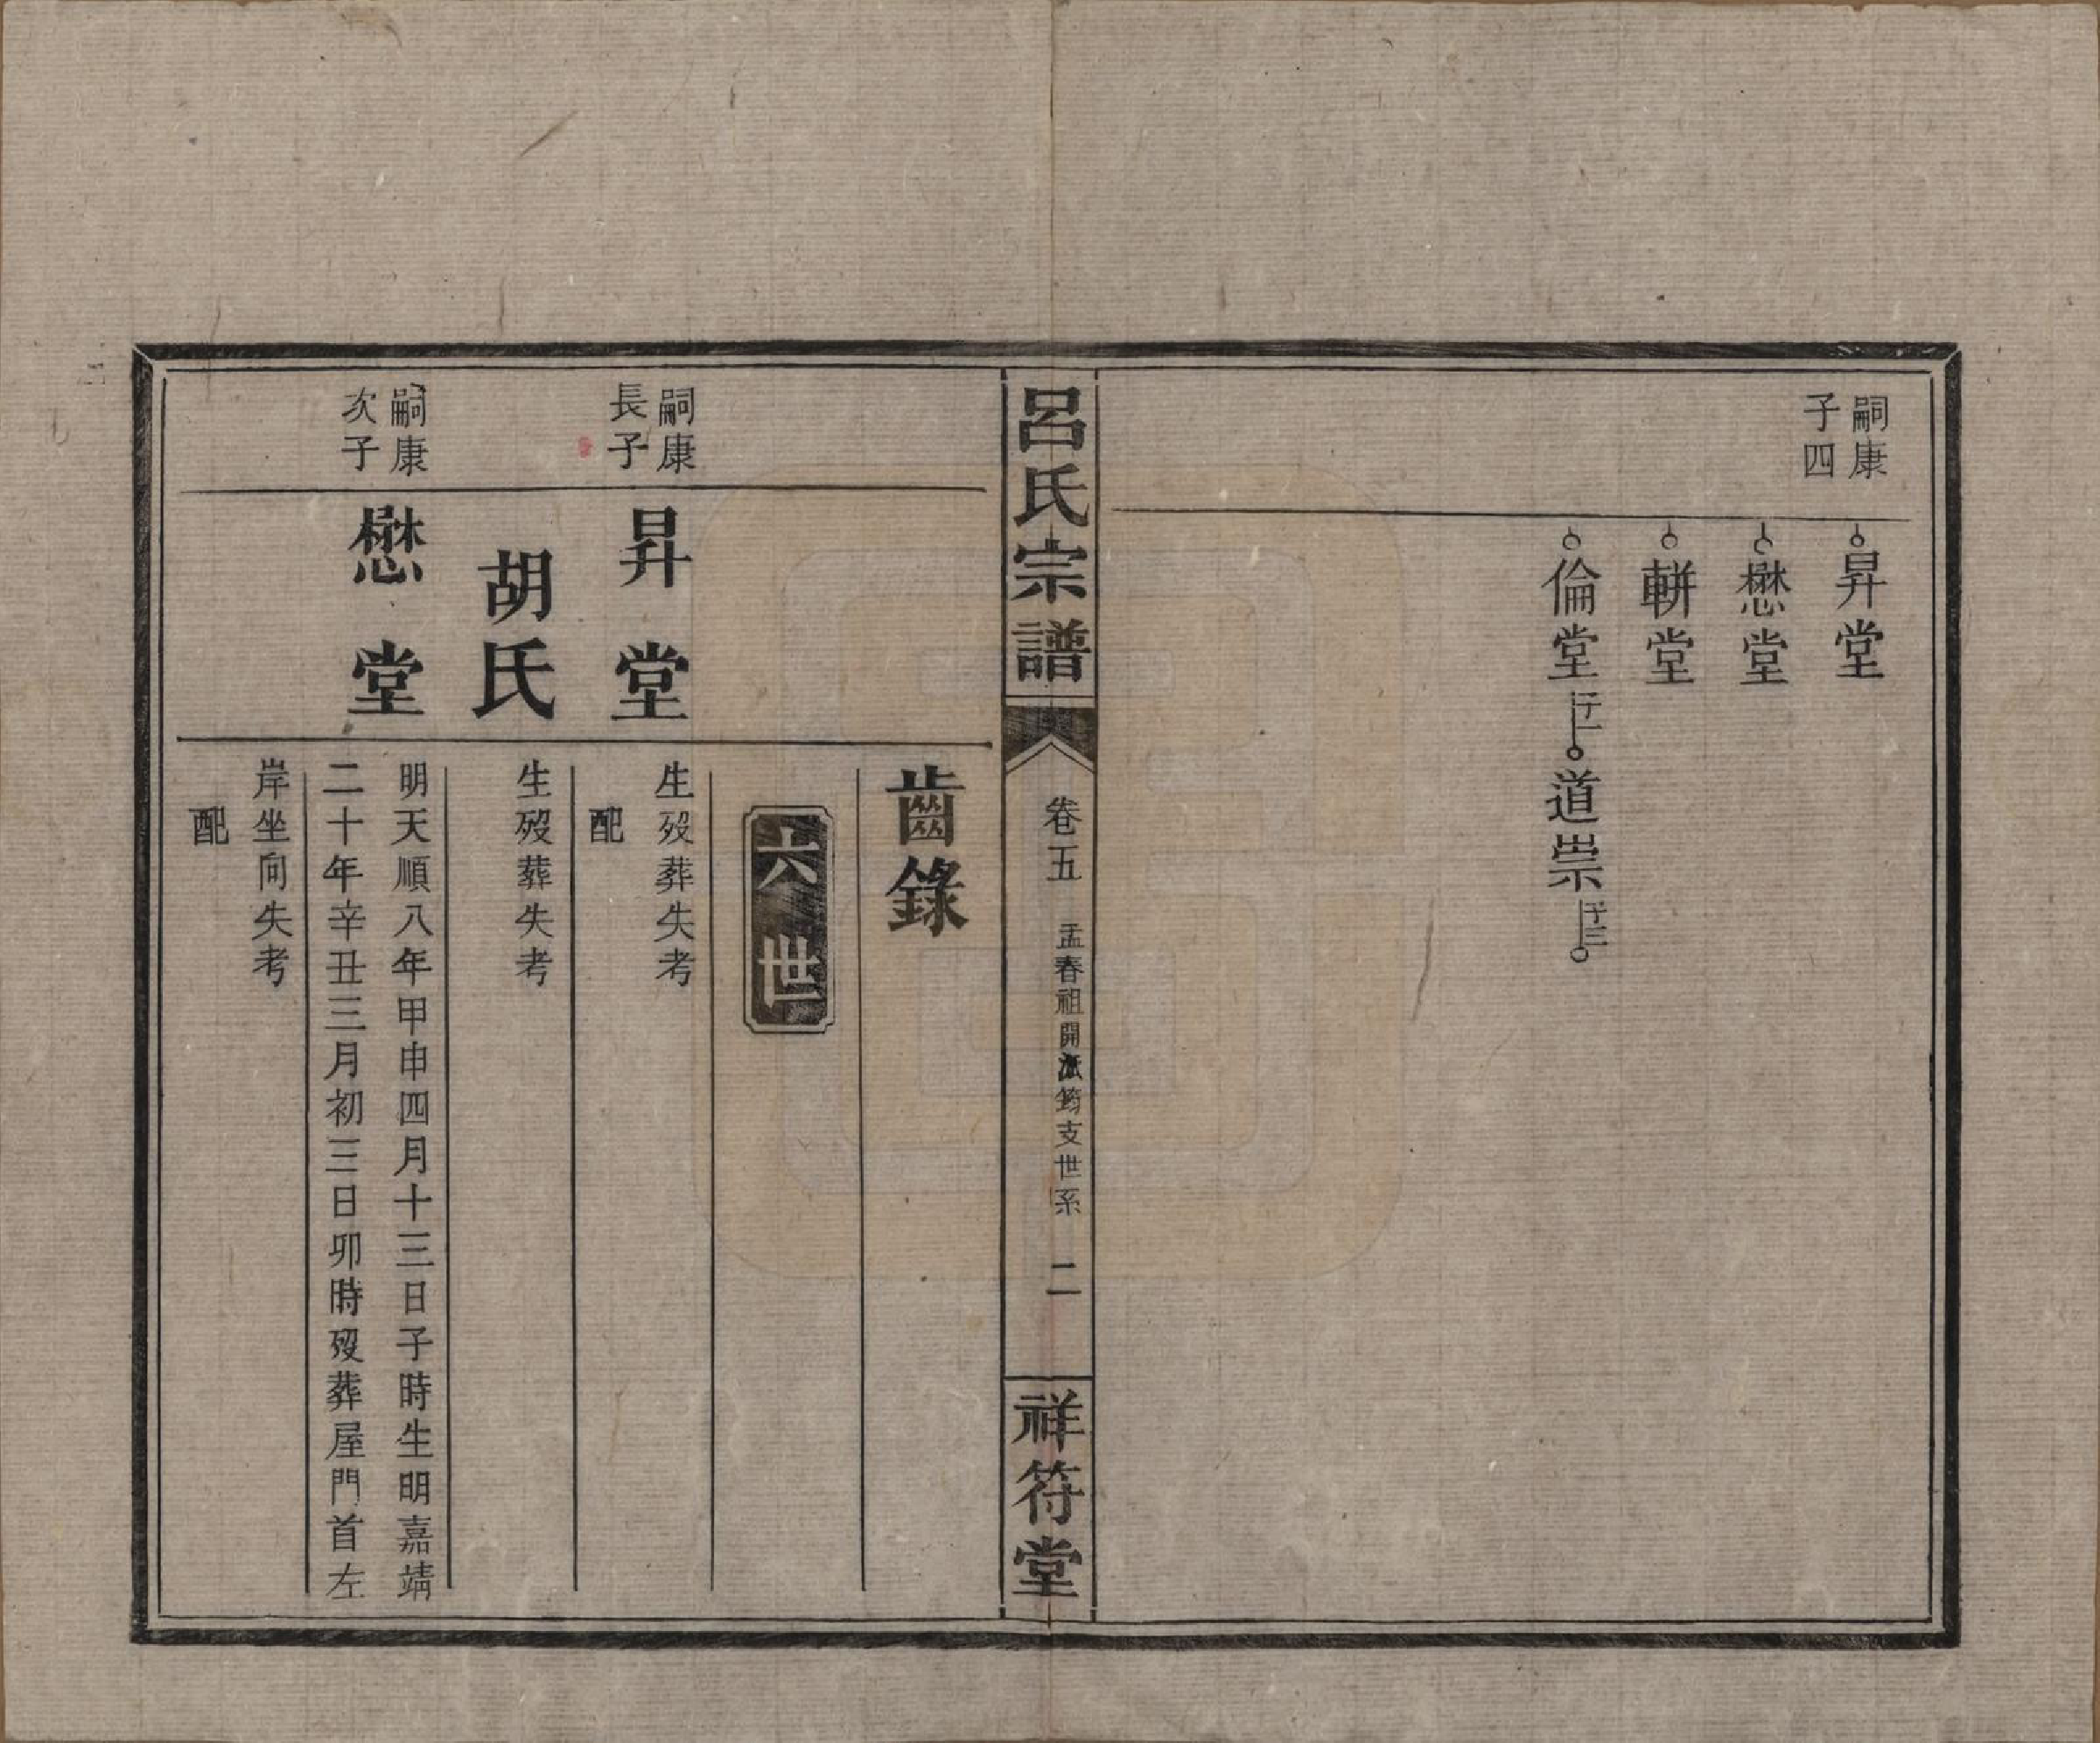 嗣康
子四
昇堂
懋堂
軿堂
倫堂 子一 道崇 子三
呂氏宗譜
卷五 孟春祖開派筠支世系 二
祥符堂
齒錄
六世
嗣康
長子
昇堂
生歿葬失考
配
胡氏
生歿葬失考
嗣康
次子
懋堂
明天順八年甲申四月十三日子時生明嘉靖
二十年辛丑三月初三日卯時歿葬屋門首左
岸坐向失考
配